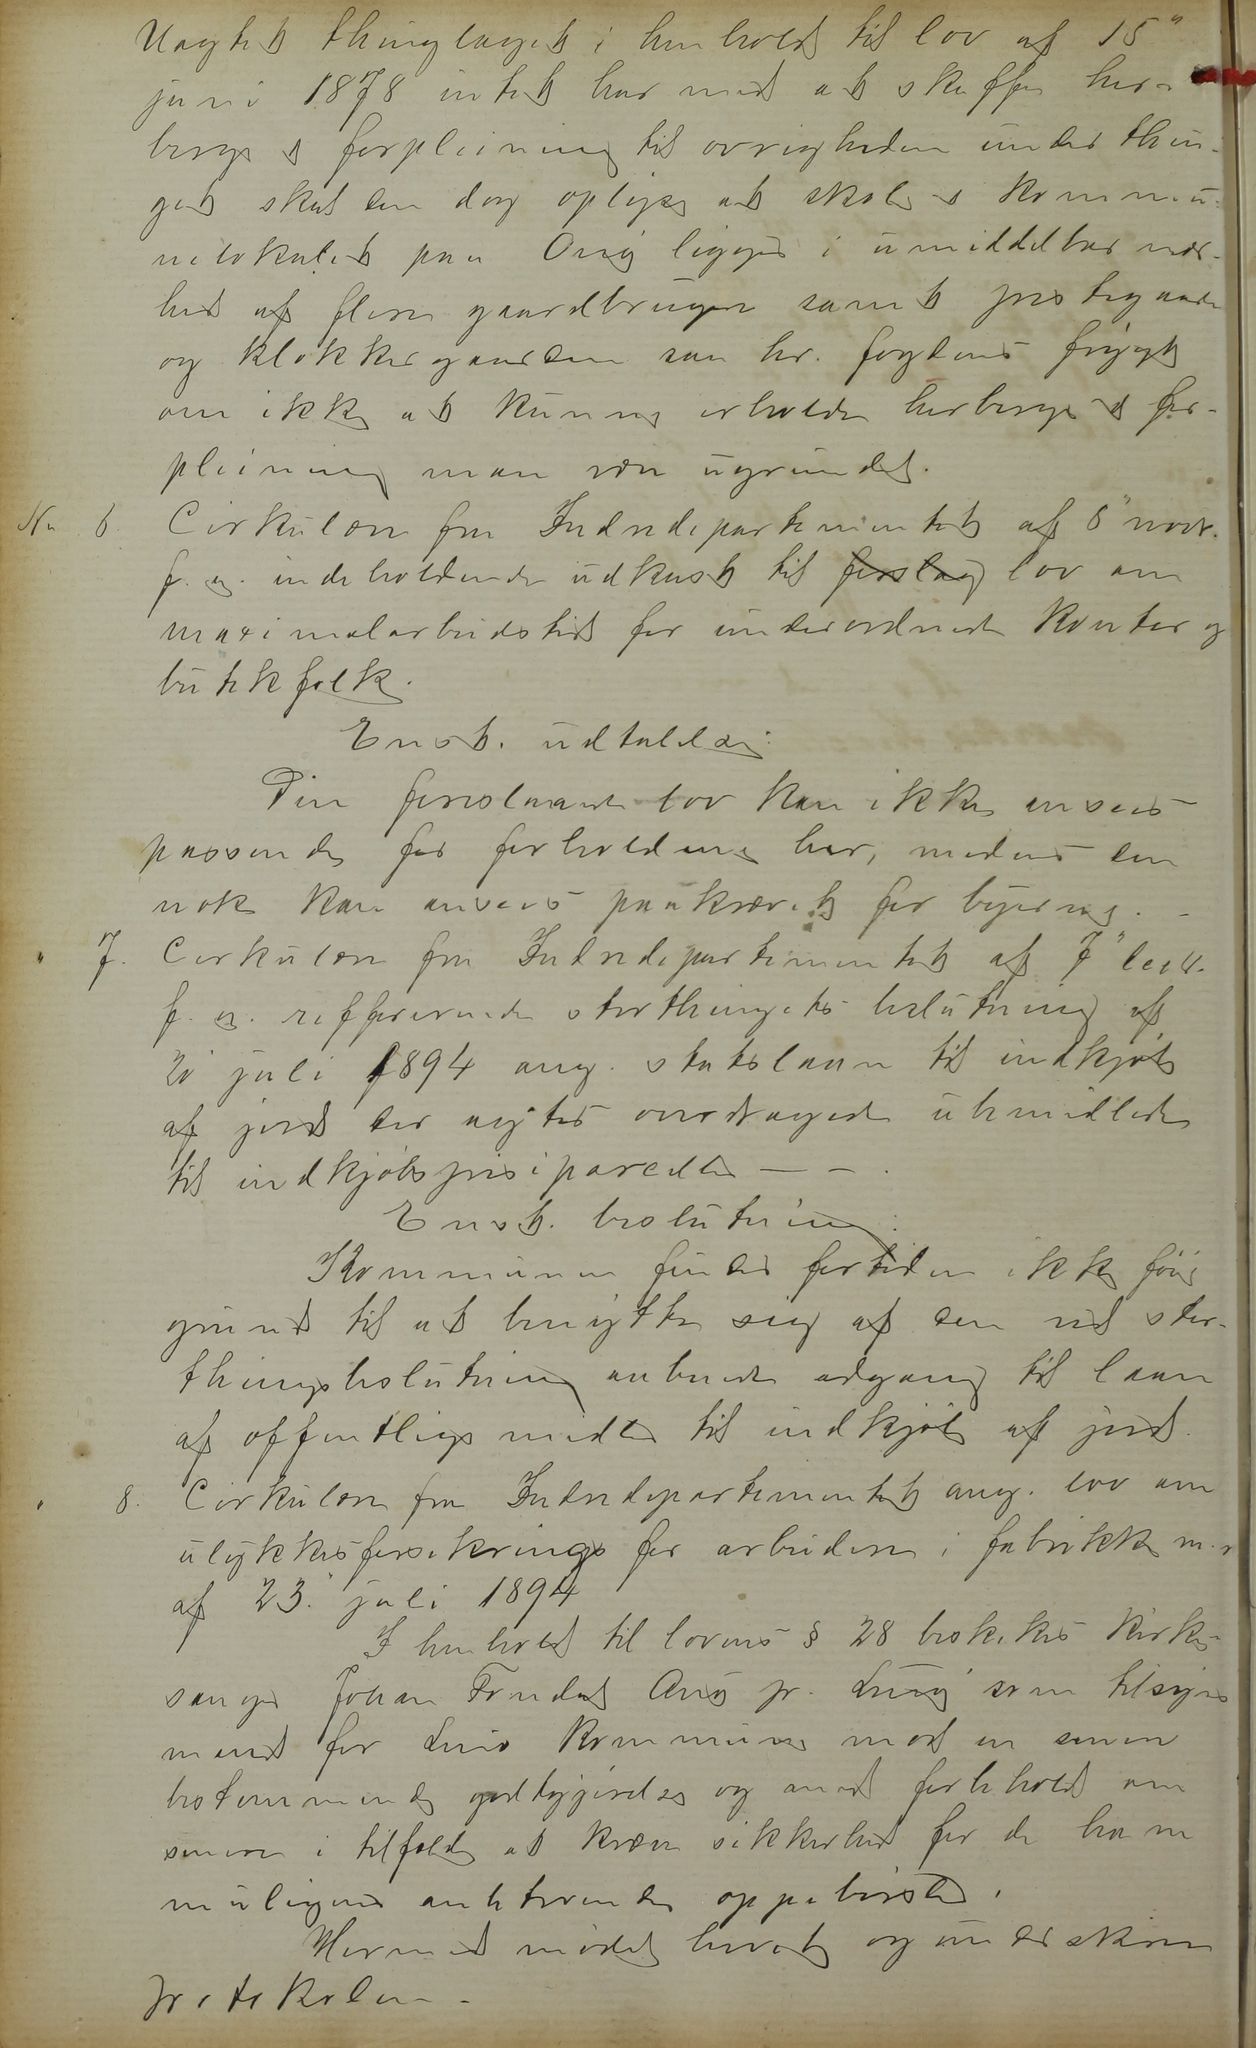 Uagtet thinglaget i henhold til lov af 15"
juni 1878 intet har med at skaffe her-
berge & forpleining til øvrigheden under thin-
get skal den dog oplyse at skole & kommu-
nelokalet paa Øvig ligger i umiddelbar nær-
hed af flere gaardbrugere samt prestegaarden
og klokkergaarden saa hr. fogdens frygt
om ikke at kunne erholde herberge & for-
pleining maa være ugrundet.
No 6. Cirkulære fra Indredepartementet af 8" novbr.
f. a. indeholdende udkast til forslag lov om
maximalarbeidstid for underordnede kontor og
butikfolk.
Enst. udtalelse:
Den foreslaaede lov kan ikke ansees
passende for forholdene her, medens den
nok kan ansees paakrævet for byerne. -
" 7. Cirkulære fra Indredepartementet af 7" decbr.
f. a. refererende storthingets beslutning af
21 juli 1894 ang. statslaan til indkjøb
af jord der agtes overdraget ubemidlede
til indkjøbspris i parceller — — .
Enst. beslutning:
Kommunen finder fortiden ikke føie
grund til at benytte sig af den ved stor-
thingsbeslutning aabnede adgang til laan
af offentlige midler til indkjøb af jord.
" 8. Cirkulære fra Indredepartementet ang. lov om
ulykkesforsikring for arbeidere i fabrikker m. v
af 23." juli 1894
I henhold til lovens § 28 beskikkes kirke-
sanger Johan Fondal som tilsyns
mand for kommune mod en senere
bestemmende godtgjørelse og med forbehold om
senere i tilfælde at kræve sikkerhed for de ham
muligens anbetroende oppebørsler.
Hermed mødet hævet og underskreven
protokolen. -